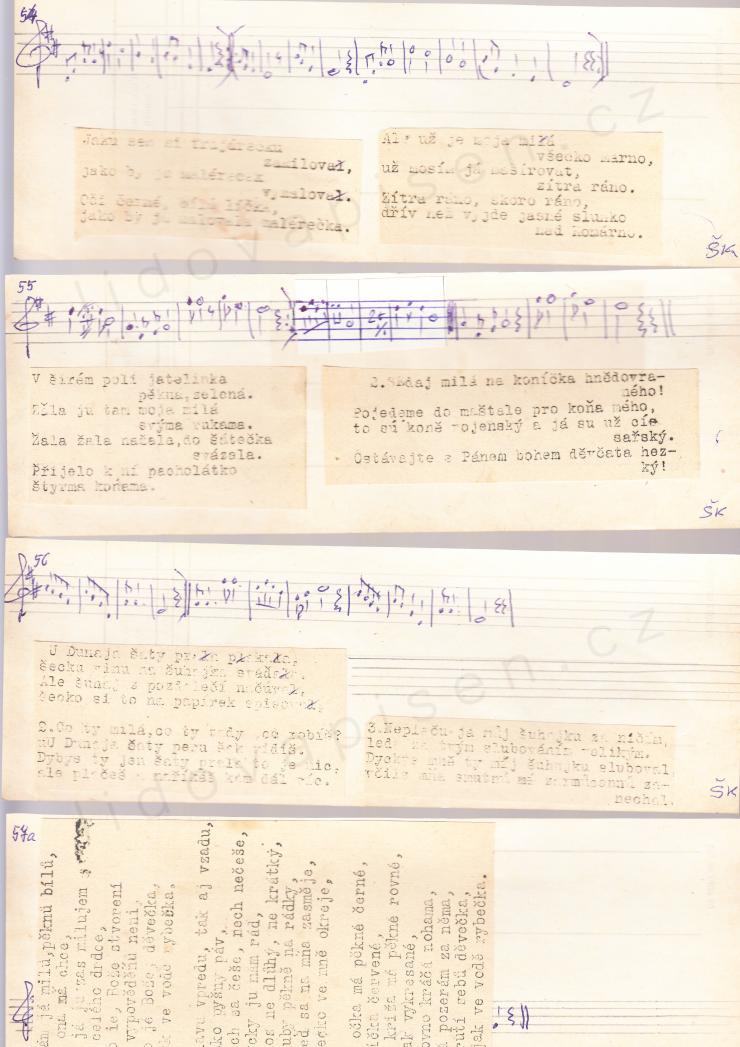 54
Jakú sem si frajárečku
zamiloval,
jako by ju malíreček
vymaloval.
Oči černé, bílá líčka,
jako by ju malovala malérečka.
Ale už je moja milá
všecko marno,
už mosím já mašírovat,
zítra ráno.
Zítra ráno, skoro ráno,
dřív než vyjde jasné slunko
nad Komárno.
ŠK
55
V širém poli jatelinka
pěkná,zelená.
Žála ju tam moja milá
svýma rukama.
Žala žala načala,do šátečka
svázala.
Přijelo k ní pacholátko
štyrma koňama.
2.Sedaj milá na koníčka hnědovra-
ného!
Pojedeme do maštale pro koňa mého,
to sú koně vojenský a já su už cíe
sařský.
Ostávajte s Pánem bohem děvčata hez-
ký!
ŠK
56
U Dunaja šaty prala plakala,
šecku vinu na šuhajka svádala.
Ale šuhaj z pozálečí načúval,
šecko si to na papírek spisoval,
2.Co ty milá,co ty tady ,co robíš?
U Dunaja šaty peru šak vidíš.
Dybys ty jen šaty prala to je nic,
ale plačeš a naříkáš kam dál víc.
3.Neplaču já můj šuhajku za ničím,
leda za tvým slubováním velikým.
Dyckys mně ty můj šuhajku sluboval
včils mňa smutnú za-
nechal.
ŠK
57a
ám já milú,pěknú bílú,
ona má chce,
já ju zas milujem s
celého drdce,
o ie, Bože stvoření
vypovědění není,
o je Bože, děvečka,
ak ve vodě rybečka.
lavu vpredu, tak aj vzadu,
ako pyšný páv,
ch sa češe, nech nečeše,
cky ju mám rád,
os ne dlúhý, ne krátký,
uby pěkné na rádky,
ed sa na mňa zasměje,
ečko ve mně okreje,
očka má pěkné černé,
ička červené,
križa má pěkné rovné,
ak vykresané,
ovno kráčá nohama,
pozerám za něma,
rútí sebú děvečka,
jak ve vodě rybečka.
lidovapisen.cz